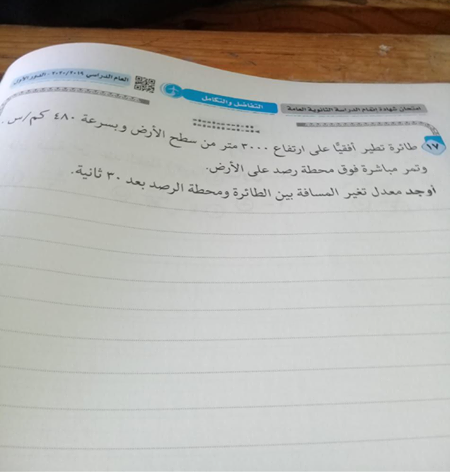 امتحان شهادة إتمام الدراسة الثانوية العامة
التفاضل والتكامل
العام الدراسي ٢٠٢٠/٢٠١٩ - الدور الأول
١٧ طائرة تطير أفقيًا على ارتفاع ٣٠٠٠ متر من سطح الأرض وبسرعة ٤٨٠ كم/س.
وتمر مباشرة فوق محطة رصد على الأرض.
أوجد معدل تغير المسافة بين الطائرة ومحطة الرصد بعد ٣٠ ثانية.